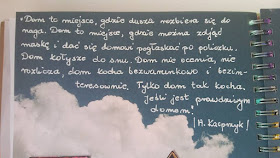 • Dom to miejsce, gdzie dusza rozbiera się do
naga. Dom to miejsce, gdzie można zdjąć
maskę i dać się domowi pogłaskać po policzku.
Dom kołysze do snu. Dom nie ocenia, nie
rozlicza, dom kocha bezwarunkowo i bezin-
teresownie. Tylko dom tak kocha.
Jeśli jest prawdziwym
domem!
/A. Kacprzyk/